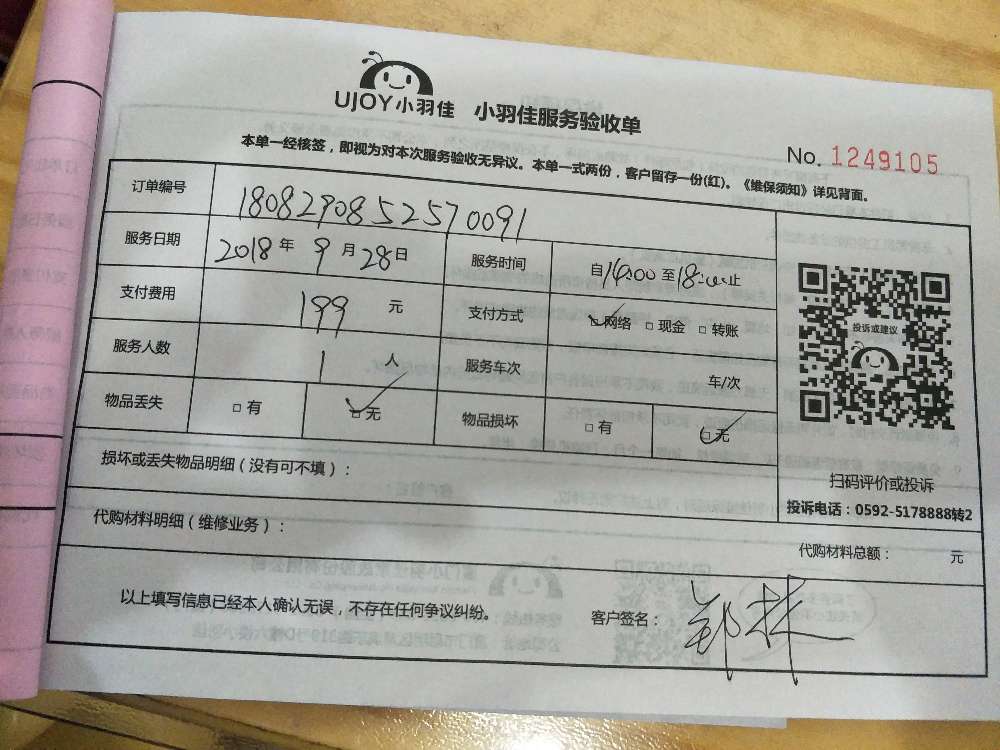 UJOY小羽佳 小羽佳服务验收单
No. 1249105
本单一经核签，即视为对本次服务验收无异议。本单一式两份，客户留存一份(红)。《维保须知》详见背面。
订单编号 1808290852570091
服务日期 2018年9月28日 服务时间 自14:00至18:00止
支付费用 199 元 支付方式 ☑网络 □现金 □转账
服务人数 1 人 服务车次 车/次
物品丢失 □有 ☑无 物品损坏 □有 ☑无
投诉或建议
扫码评价或投诉
投诉电话：0592-5178888转2
损坏或丢失物品明细（没有可不填）：
代购材料明细（维修业务）：
代购材料总额： 元
以上填写信息已经本人确认无误，不存在任何争议纠纷。 客户签名：